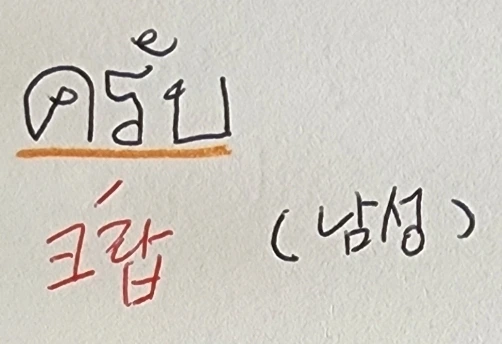 ครับ
크랍 (남성)